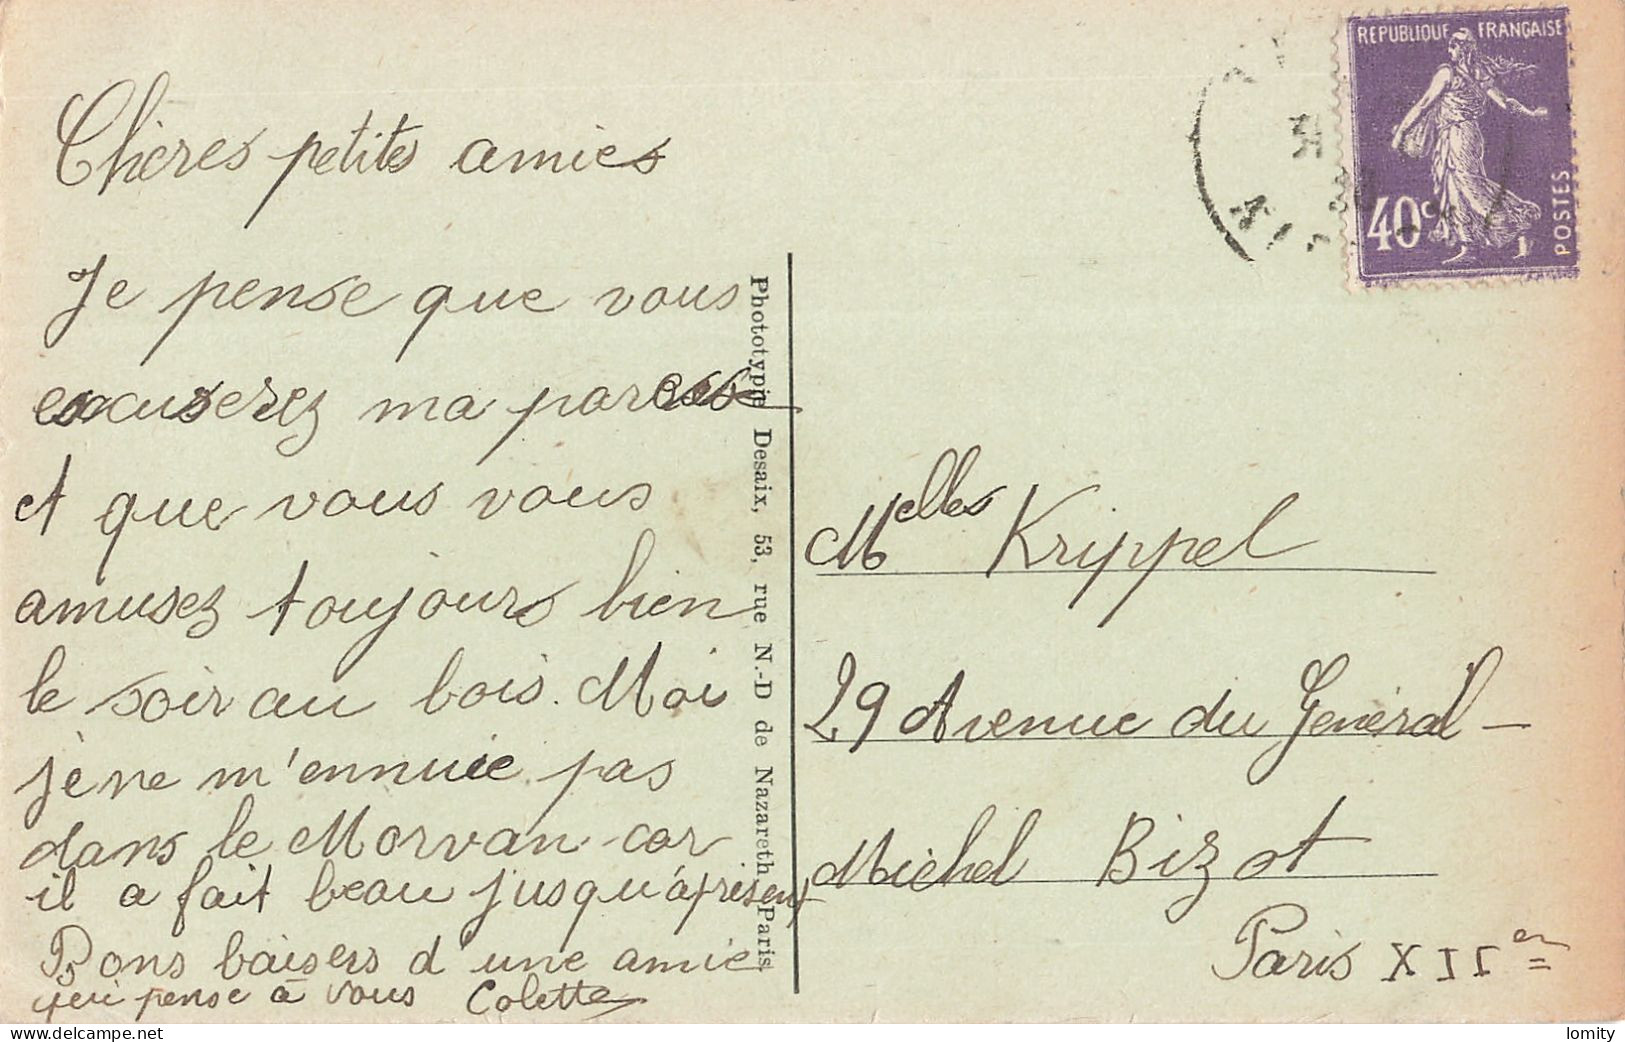 Chères petites amies
Je pense que vous
excuserez ma paresse
et que vous vous
amusez toujours bien
le soir au bois. Moi
je ne m'ennuie pas
dans le Morvan car
il a fait beau jusqu'àprésent
Bons baisers d'une amie
qui pense à vous Colette
Phototypie Desaix, 53, rue N.-D de Nazareth, Paris
REPUBLIQUE FRANÇAISE
40c
POSTES
Melles Krippel
29 Avenue du Général-
Michel Bizot
Paris XIIer
delcampe.net
lomity